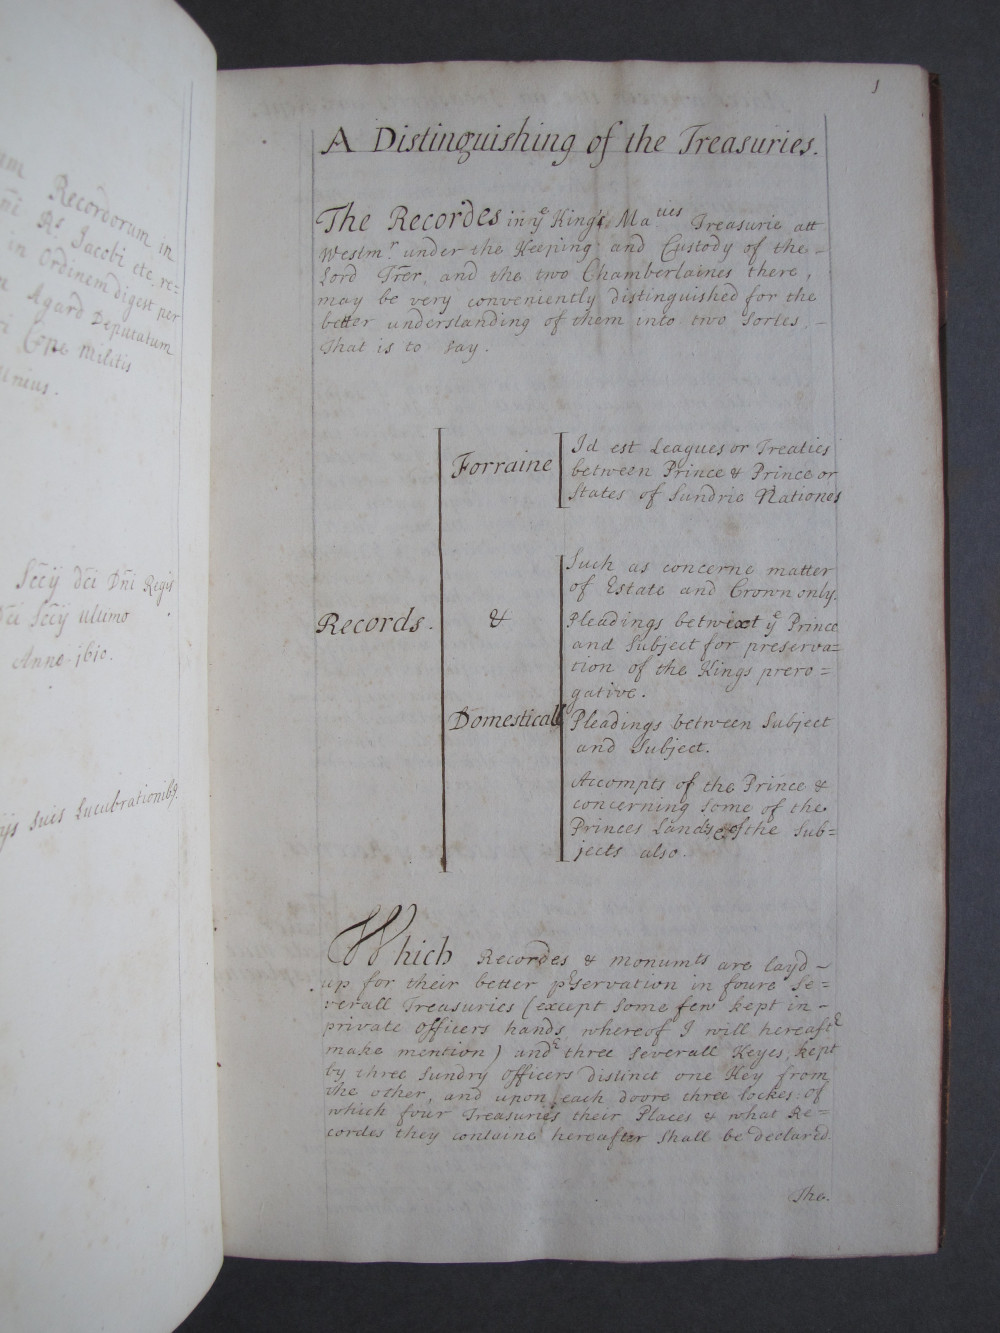 Recordorum in
Dñi Rs Jacobi etc. re=
in Ordinem digest per
Agard Deputatum
Cope Militis
Scc̃ij dc̃i Dñi Regis
Scc̃ij ultimo
Anno 1610.
suis Lucubrationibq
1
A Distinguishing of the Treasuries.
The Recordes in yᵉ King's Maᵗⁱᵉˢ Treasurie att
Westmʳ under the Keeping and Custody of the -
Lord Trẽr, and the two Chamberlaines there,
may be very conveniently distinguished for the
better understanding of them into two sortes, -
That is to say.
Forraine
Id est Leagues or Treaties
between Prince & Prince or
States of Sundrie Nationes
Records.
&
Domesticall
Such as concerne matter
of Estate and Crown only.
Pleadings betwixt yᵉ Prince
and Subject for preserva=
tion of the Kings prero=
gative.
Pleadings between Subject
and Subject.
Accompts of the Prince &
concerning some of the
Princes Lands & of the Sub=
jects also.
Which Recordes & monumᵗˢ are layd ~
up for their better pʳservation in foure Se=
verall Treasuries (except some few kept in -
private officers hands, whereof I will hereaftʳ
make mention) and three severall Keyes, kept
by three sundry officers distinct one Key from
the other, and upon each doore three lockes: of
which four Treasuries their Places & what Re=
cordes they containe hereafter shall be declared.
The.